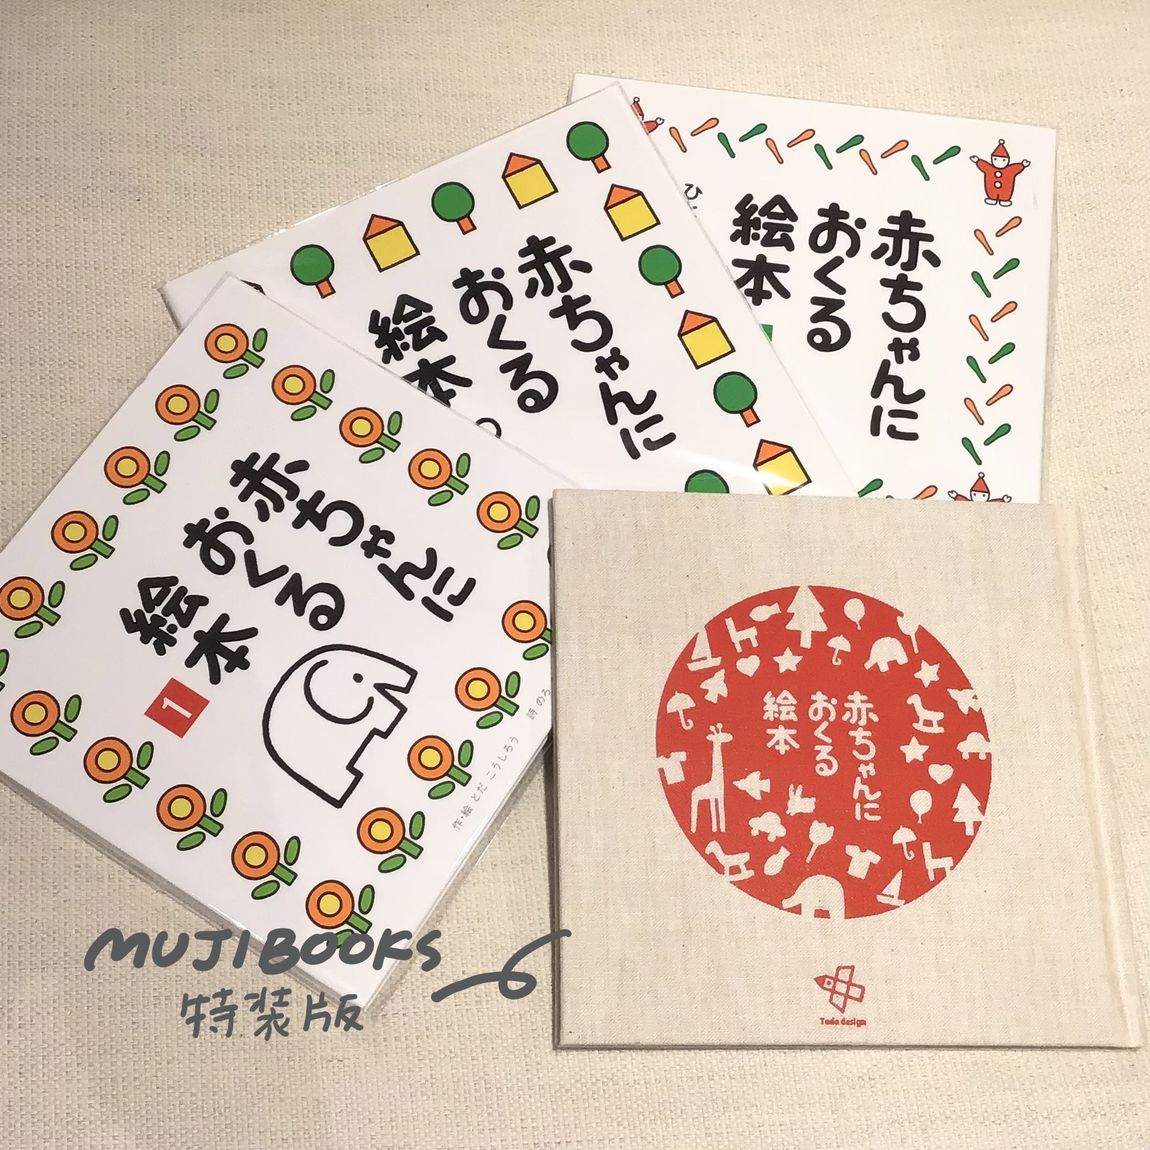 赤ちゃんに
おくる
絵本
ひ
赤ちゃんに
おくる
絵本
赤ちゃんに
おくる
絵本
1
作・絵 とだ こうしろう
詩 のろ
赤ちゃんに
おくる
絵本
Toda design
MUJIBOOKS
特装版